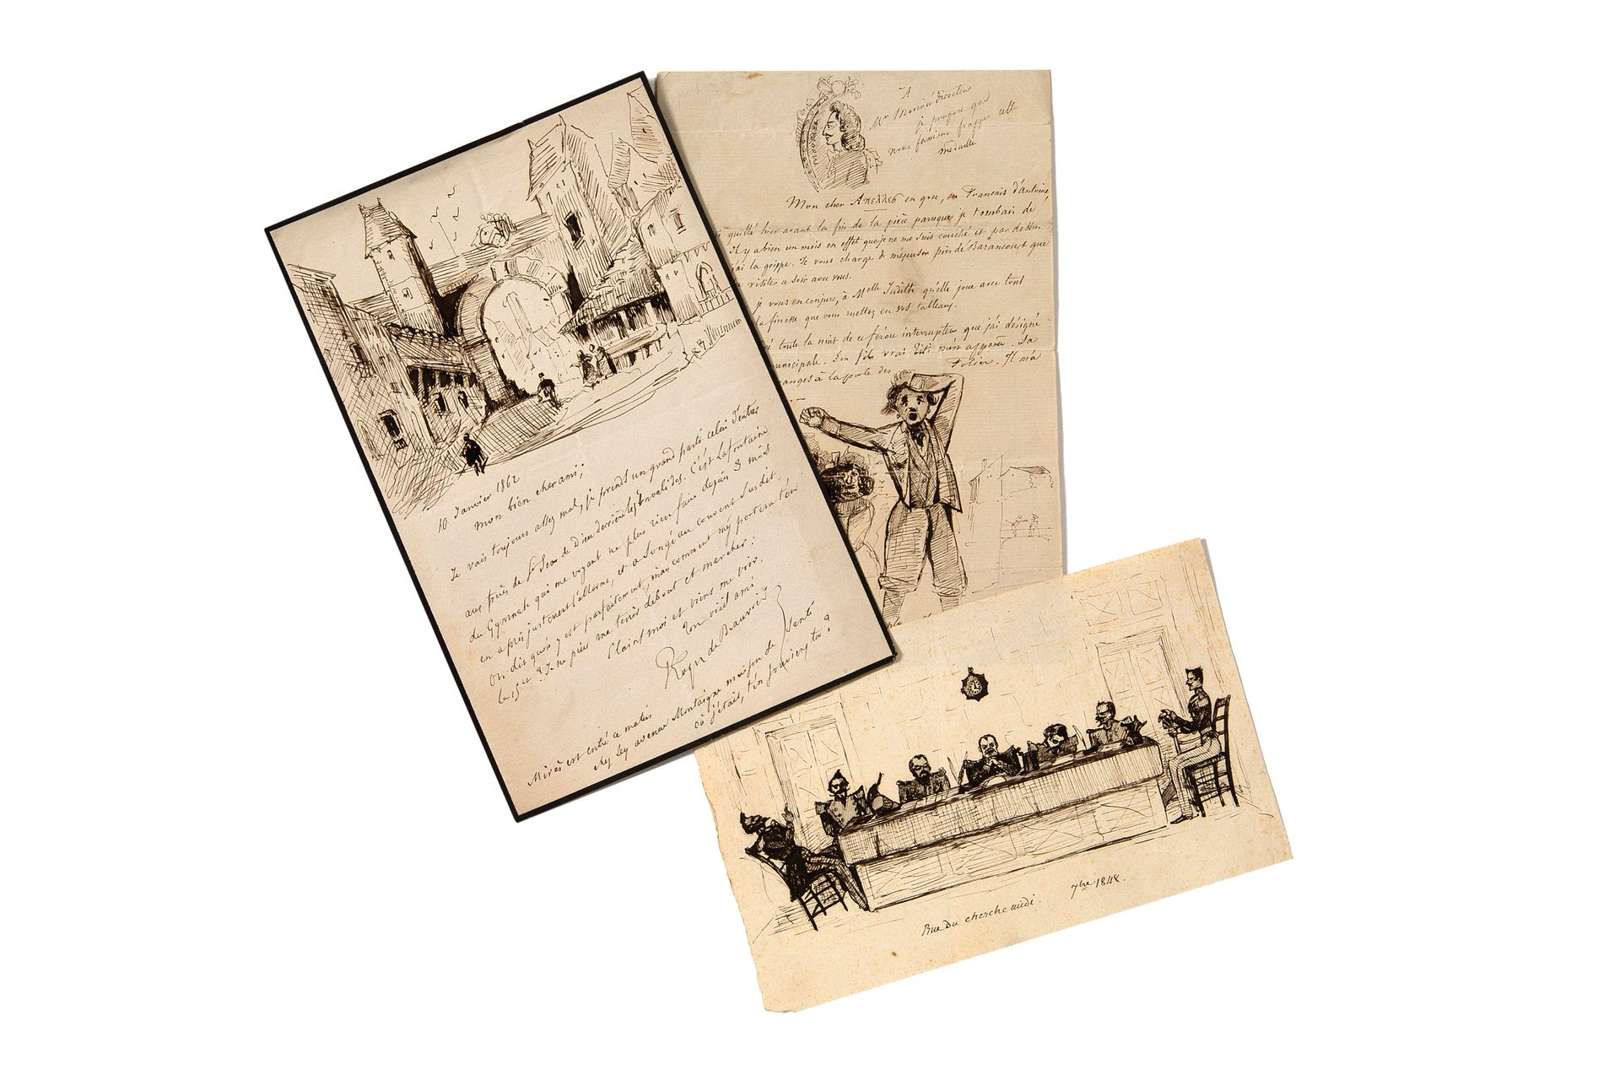 10 Janvier 1862
mon bien cher ami;
Je vais toujours assez mal, je prends un grand parti celui d'entrer
aux frères de St Jean de Dieu derrière les Invalides. C'est Lafontaine
du Gymnase qui me voyant ne plus rien faire depuis 3 mois
en a pris justement l'alarme, et a songé au couvent susdit.
On dit qu'on y est parfaitement, mais comment m'y portera t'on
le 15 et ? Je ne puis me tenir debout et marcher!
Plains moi et viens me voir.
Ton vieil ami
Roger de Beauvoir
Mirès est entré ce matin
chez ley avenue Montaigne maison de Santé
où j'étais, t'en souviens tu?
A
Mr Monié directeur
je propose que
nous fassions frapper cette
médaille
Mon cher en grec, en Français d'Antoine
quitté hier avant la fin de la pièce parceque je tombais de
Il y a bien un mois en effet que je ne me suis couché et par dessus
j'ai la grippe. Je vous charge de m'excuser près de Barancourt que
visiter ce soir avec vous.
je vous en conjure, à Melle Judith qu'elle joue avec tout
la finesse que vous mettez en vos tableaux.
toute la nuit de ce féroce interrupteur que j'ai désigné
municipale. Son fils vrai m'est apparu. Sa
anges à la porte des Il m'a
Rue du cherche midi. 7bre 1848.